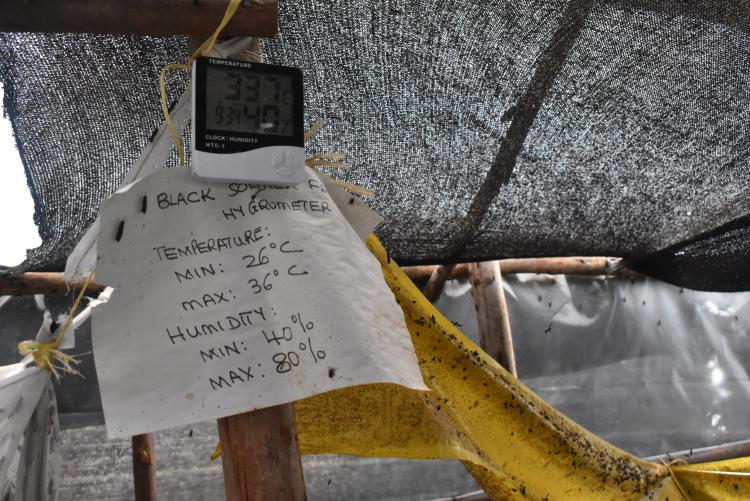 TEMPERATURE
33.7°C
9:34 40%
CLOCK / HUMIDITY
HTC-1
BLACK
HYGROMETER
TEMPERATURE:
MIN: 26°C
MAX: 36°C
HUMIDITY:
MIN: 40%
MAX: 80%